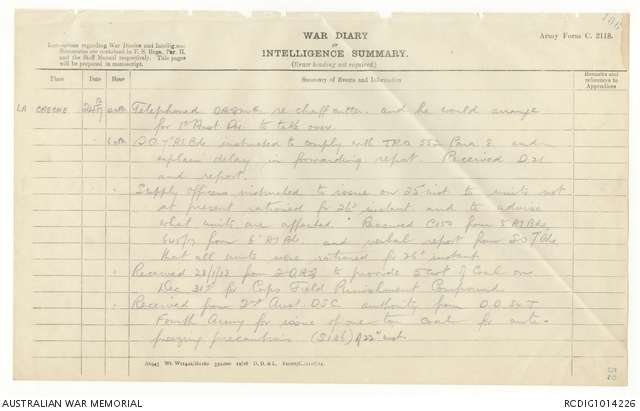 WAR DIARY
or
INTELLIGENCE SUMMARY.
(Erase heading not required.)
Army Form C. 2118.
Instructions regarding War Diaries and Intelligence
Summaries are contained in F. S. Regs., Par. II.
and the Staff Manual respectively. Title pages
will be prepared in manuscript.
Place Date Hour Summary of Events and Information Remarks and
references to
Appendices
LA CRECHE Telephoned re chaff cutter and he would arrange
for 1st Aust Div. to take over.
S.O. 7 AI Bde instructed to comply with TRO 552 Para 8. and
explain delay in forwarding report. Received D21
and report.
Supply Officers instructed to issue on 25 inst to units not
at present rationed for 26th instant and to advise
what units are affected. Received C150 from 5 AI Bde,
from 6 AI Bde and verbal report from SO 7 Bde
that all units were rationed for 26th instant
Received from to provide 5 cwt of Coal on
Dec 31st for Corps Field Punishment Compound
Received from 2nd Aust. DSC authority from D.D.S&T
Fourth Army for issue of one ton coal for anti-
freezing precautions (S126) 22nd inst
AUSTRALIAN WAR MEMORIAL
RCDIG1014226